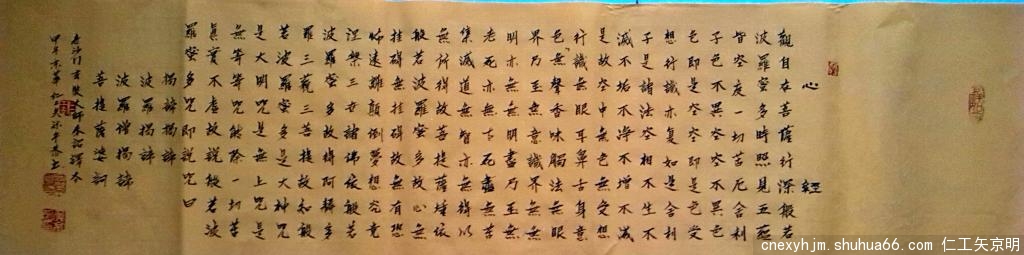 心經
觀自在菩薩行深般若
波羅蜜多時照見五蘊
皆空度一切苦厄舍利
子色不異空空不異色
色即是空空即是色受
想行識亦復如是舍利
子是諸法空相不生不
滅不垢不淨不增不減
是故空中無色無受想
行識無眼耳鼻舌身意
無色聲香味觸法無眼
界乃至無意識界無無
明亦無無明盡乃至無
老死亦無老死盡無苦
集滅道無智亦無得以
無所得故菩提薩埵依
般若波羅蜜多故心無
挂礙無挂礙故無有恐
怖遠離顛倒夢想究竟
涅槃三世諸佛依般若
波羅蜜多故得阿耨多
羅三藐三菩提故知般
若波羅蜜多是大神咒
是大明咒是無上咒是
無等等咒能除一切苦
真實不虛故說般若波
羅蜜多咒即說咒曰
揭諦揭諦
波羅揭諦
波羅僧揭諦
菩提薩婆訶
唐沙門玄奘大師奉詔譯本
甲午京華仁工矢京
cnexyhjm.shuhua66.com @ 仁工矢京明